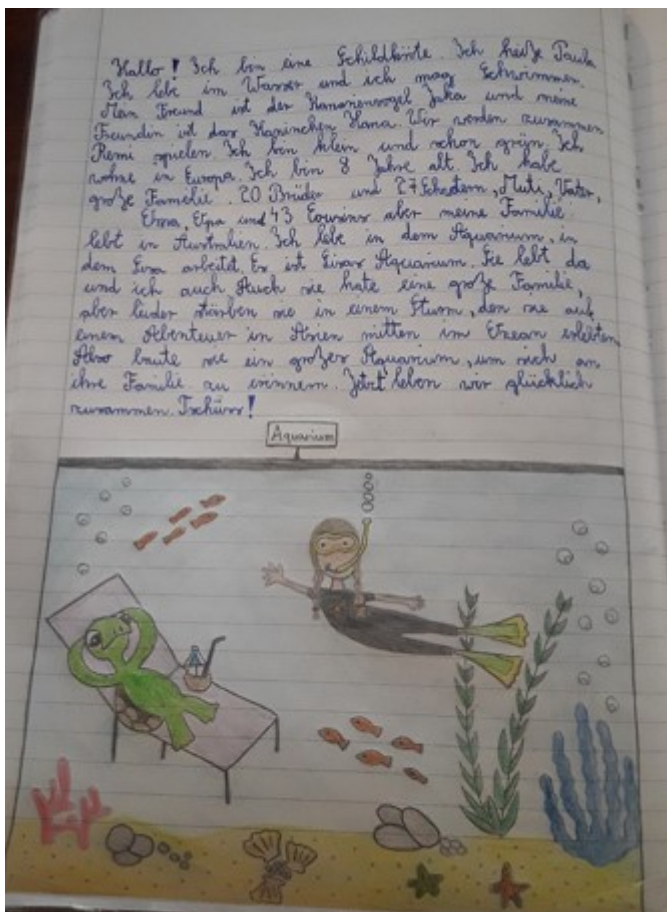 Hallo! Ich bin eine Schildkröte. Ich heiße Paula
Ich lebe im Wasser und ich mag Schwimmen.
Man Freund ist der Kanarienvogel Jaka und meine
Freundin ist das Kaninchen Hana. Wir werden zusammen
Remi spielen. Ich bin klein und schon grün. Ich
wohne in Europa. Ich bin 8 Jahre alt. Ich habe
große Familie. 20 Brüder und 27 Schestern, Muti, Vater,
Oma, Opa und 43 Cousins aber meine Familie
lebt in Australien. Ich lebe in dem Aquarium, in
dem arbeitet. Es ist Aquarium. Sie lebt da
und ich auch Auch sie hate eine große Familie,
aber leider starben sie in einem Sturm, den sie auf
einem Abenteuer in Asien mitten im Ozean erlebten
Also baute sie ein großes Aquarium, um sich an
ihre Familie zu erinnern. Jetzt leben wir glücklich
zusammen. Tschüss!
Aquarium